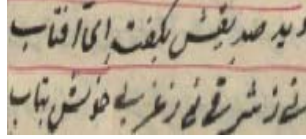 دید صدیقش بگفت ای آفتاب
نی ز شرقی نی ز غربی خوش بتاب